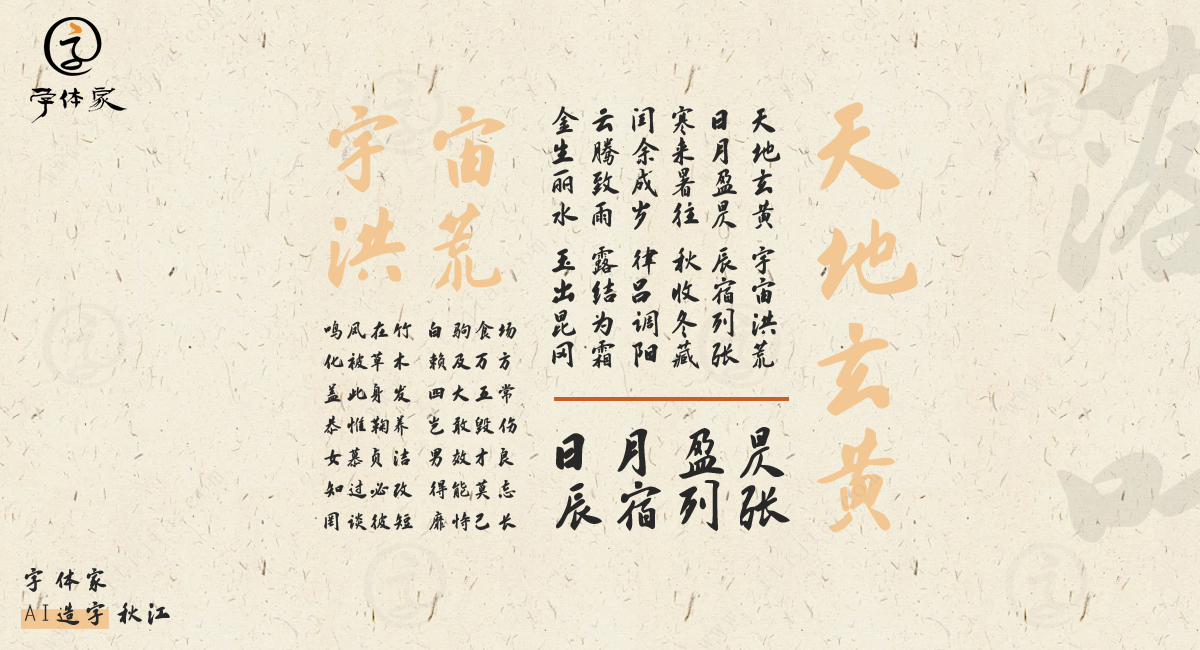 字体家
天地玄黄
天地玄黄 宇宙洪荒
日月盈昃 辰宿列张
寒来暑往 秋收冬藏
闰余成岁 律吕调阳
云腾致雨 露结为霜
金生丽水 玉出昆冈
宇宙
洪荒
鸣凤在竹 白驹食场
化被草木 赖及万方
盖此身发 四大五常
恭惟鞠养 岂敢毁伤
女慕贞洁 男效才良
知过必改 得能莫忘
罔谈彼短 靡恃己长
日月盈昃
辰宿列张
字体家
AI造字 秋江